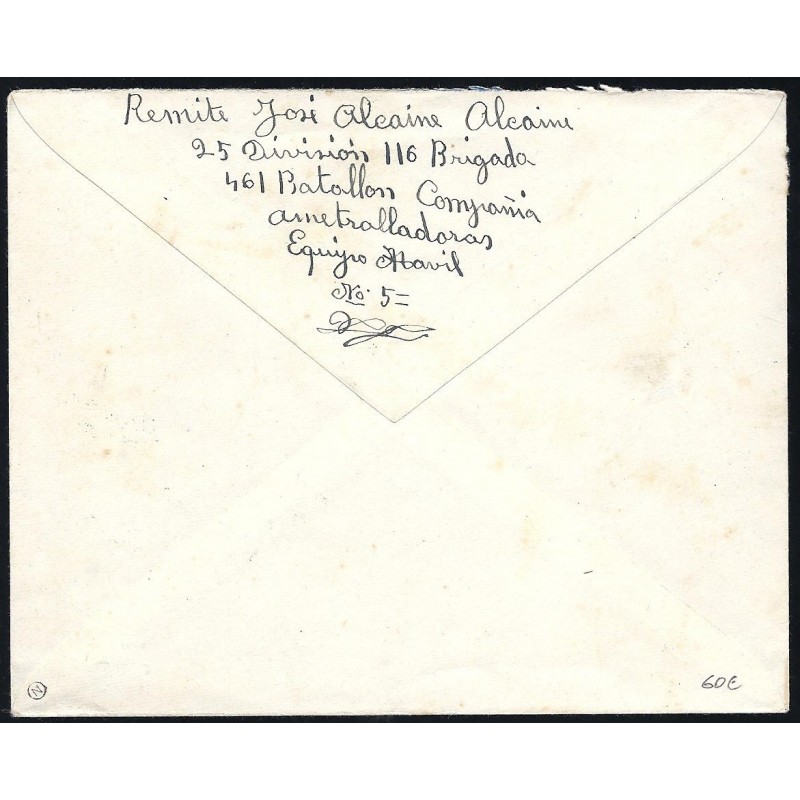 Remite José Alcaine Alcaine
25 División 116 Brigada
461 Batallon Compañia
ametralladoras
Equipo Mavil
No. 5=
N
60€